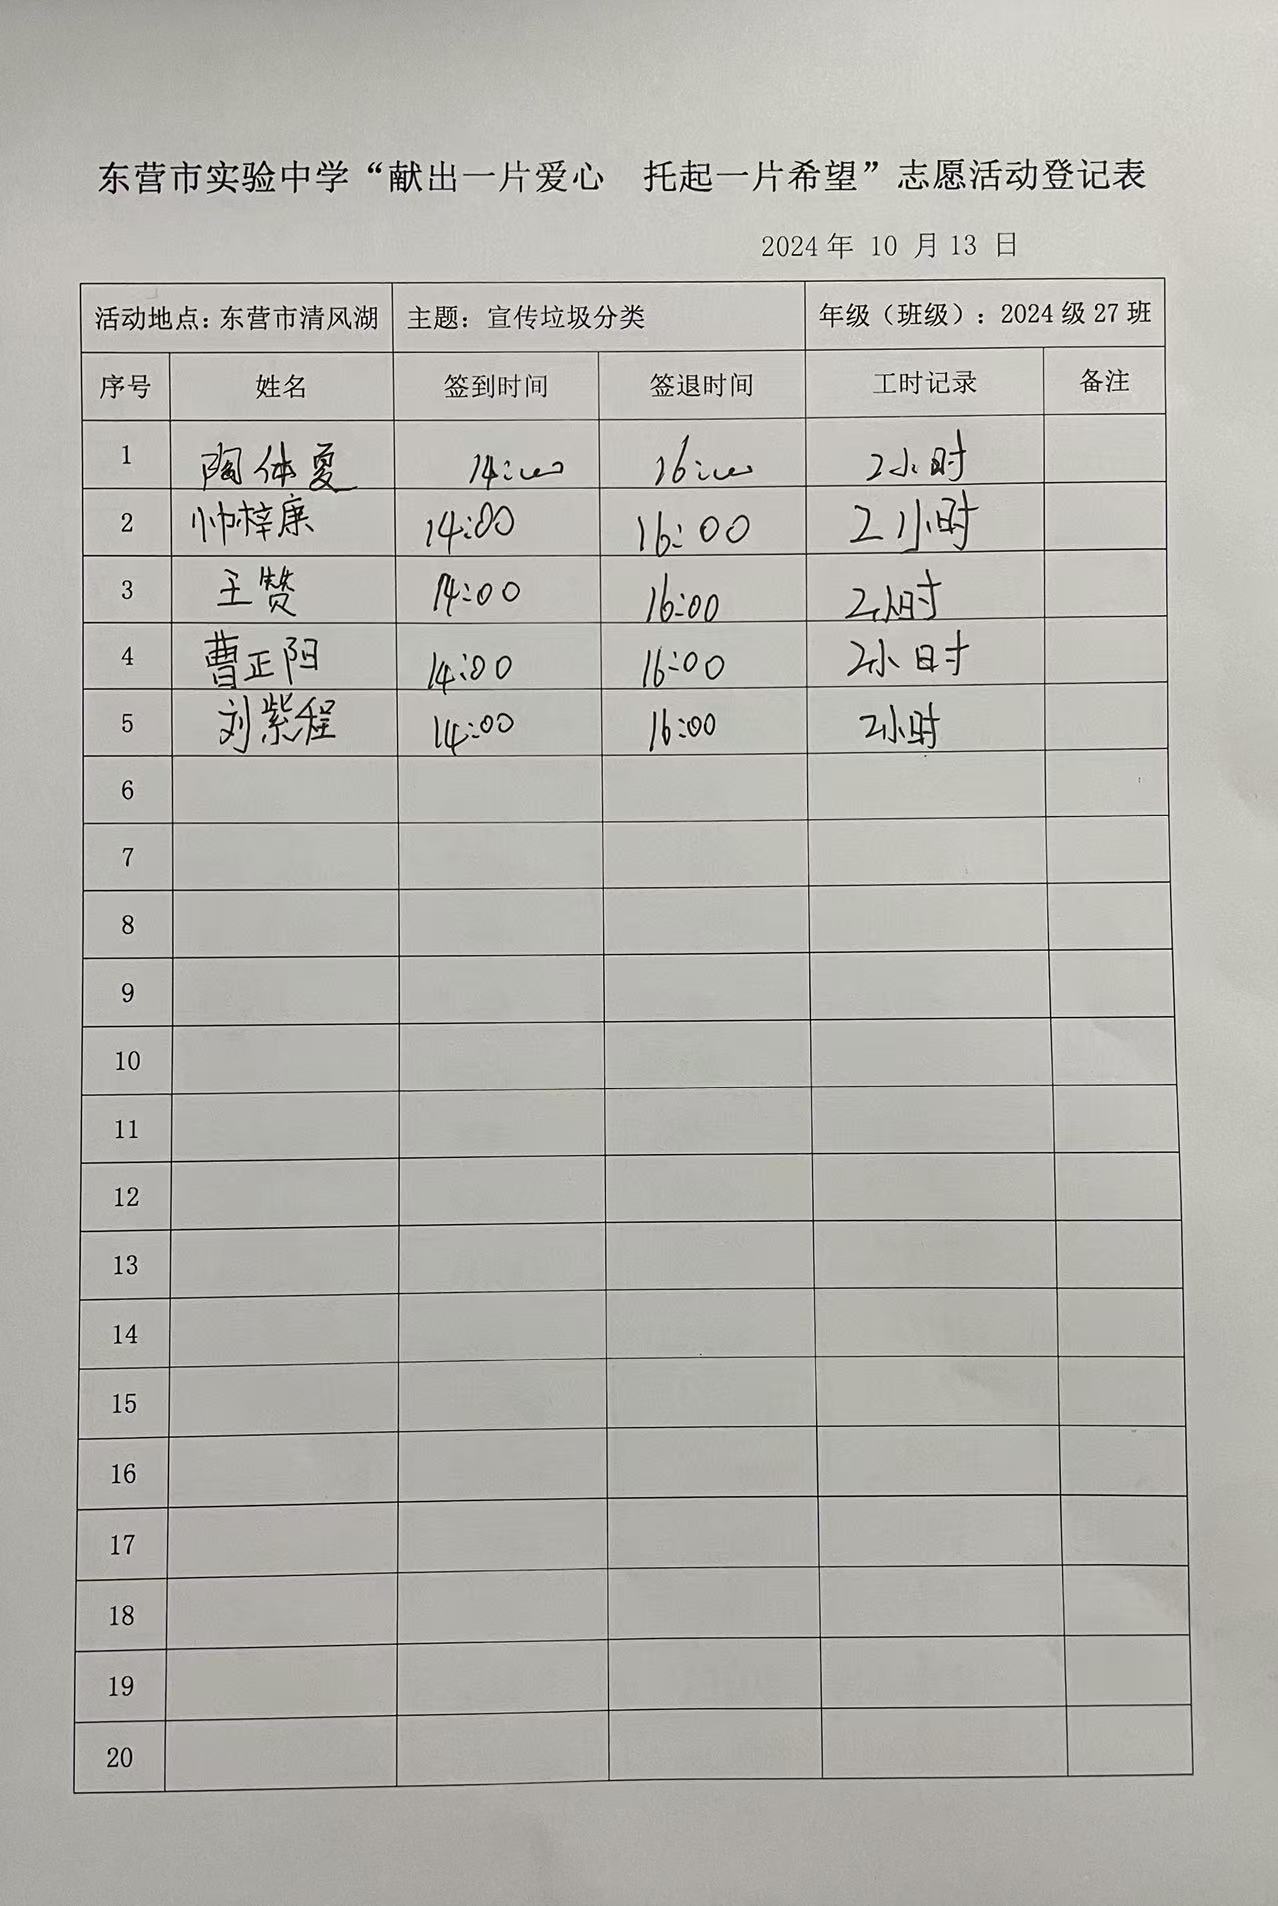 东营市实验中学“献出一片爱心 托起一片希望”志愿活动登记表
2024 年 10 月 13 日
活动地点：东营市清风湖 主题：宣传垃圾分类 年级（班级）：2024 级 27 班
序号 姓名 签到时间 签退时间 工时记录 备注
1 陶体夏 14:00 16:00 2小时
2 帅梓康 14:00 16:00 2小时
3 王赞 14:00 16:00 2小时
4 曹正阳 14:00 16:00 2小时
5 刘紫程 14:00 16:00 2小时
6
7
8
9
10
11
12
13
14
15
16
17
18
19
20